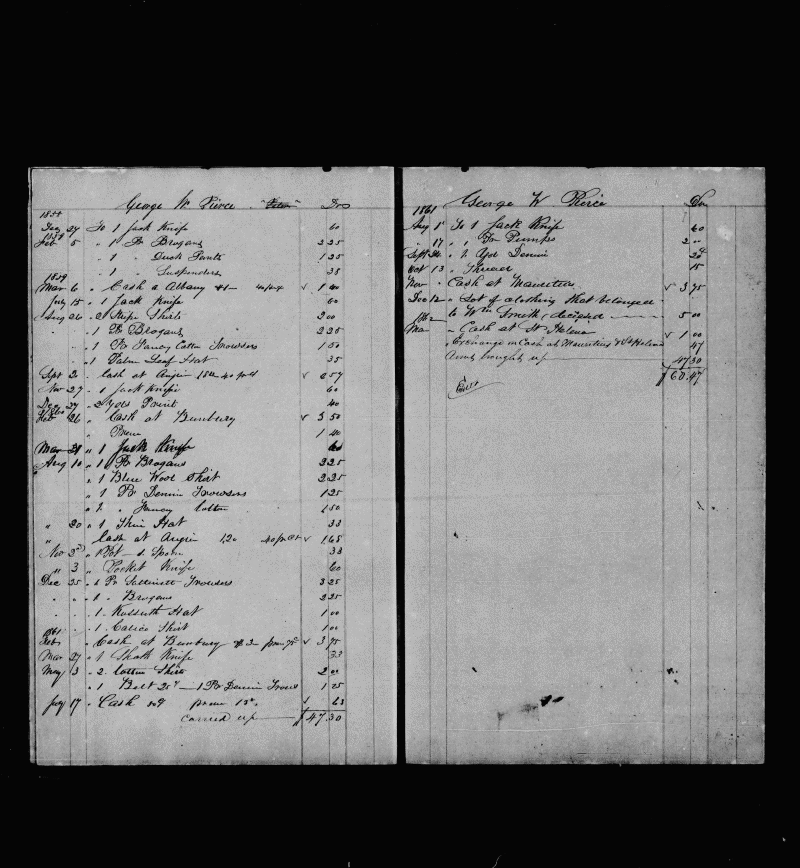 George W Pierce Drs
Dec 27 To 1 Jack Knife 60
Feb 5 " 1 Pr Brogans 2 25
" 1 " Duck Pants 1 25
" 1 " Suspenders 38
1859
Mar 6 " Cash a Albany 1 40
July 15 " 1 Jack Knife 60
Aug 26 " 2 Stripe Shirts 2 00
" 1 Pr Brogans 2 25
" 1 Pr Fancy Cotton Trowsers 1 50
" 1 Palm Leaf Hat 35
Sept 2 " Cash at 40 57
Nov 27 " 1 Jack Knife 60
Dec 27 " 2 yds Print 40
1860
Feb 26 " Cash at Bunbury 3 50
" Prem 1 40
Mar 21 " 1 Jack Knife 60
Aug 10 " 1 Pr Brogans 2 25
" 1 Blue Wool Shirt 2 25
" 1 Pr Denim Trowsers 1 25
" 1 " Fancy Cotton 1 50
" 20 " 1 Hat 33
" Cash at 40 pr ct 1 68
Nov 3d " 1 Pot - 1 Spoon 38
" 3 " Pocket Knife 60
Dec 25 " 1 Pr Sattinett Trowsers 3 25
" 1 " Brogans 2 25
" 1 Kossuth Hat 1 00
" 1 Calico Shirt 1 00
1861
Feb " Cash at Bunbury $3 prem 75c 3 75
Mar 27 " 1 Sheath Knife 33
May 3 " 2 Cotton Shirts 2 00
" 1 Belt 25c — 1 Pr Denim Trows 1 25
July 17 " Cash 50c prem 13c 63
Carried up $47.30
1861 George W Pierce Drs
Aug 1st To 1 Jack Knife 60
17 " 1 Pr Pumps 2 00
Sept " 2 yds Denim
Oct 13 " Thread 15
Nov " Cash at Mauritius 3 75
Dec 12 " Lot of clothing that belonged
to Wm Smith, deceased 5 00
1862
Mar " Cash at St Helena 1 00
" Exchange on Cash at Mauritius & St Helena 47
Amt brought up 47 30
$60.47